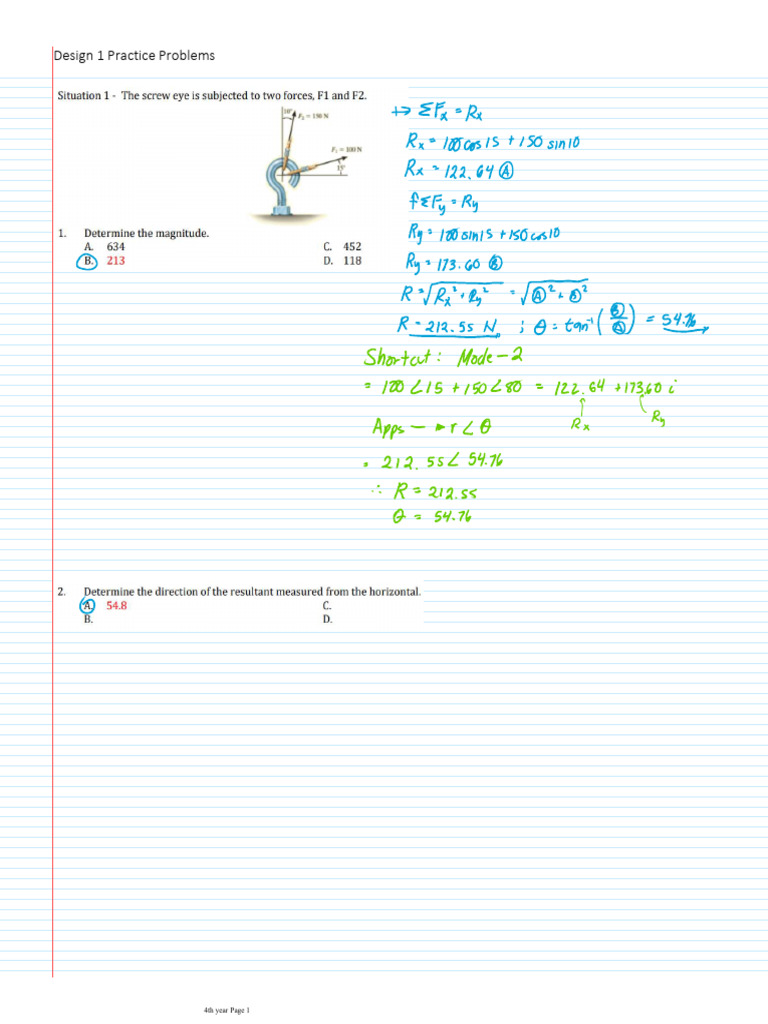 Design 1 Practice Problems
Situation 1 - The screw eye is subjected to two forces, F1 and F2.
10°
F₂ = 150 N
F₁ = 100 N
15°
1. Determine the magnitude.
A. 634 C. 452
B. 213 D. 118
→ ΣFx = Rx
Rx = 100 cos 15 + 150 sin 10
Rx = 122.64 Ⓐ
ΣFy = Ry
Ry = 100 sin 15 + 150 cos 10
Ry = 173.60 Ⓑ
R = √Rx² + Ry² = √Ⓐ² + Ⓑ²
R = 212.55 N ; θ = tan⁻¹ (Ⓑ/Ⓐ) = 54.76
Shortcut: Mode - 2
= 100 ∠ 15 + 150 ∠ 80 = 122.64 + 173.60 i
Rx Ry
Apps — ► r ∠ θ
= 212.55 ∠ 54.76
∴ R = 212.55
θ = 54.76
2. Determine the direction of the resultant measured from the horizontal.
A. 54.8 C.
B. D.
4th year Page 1